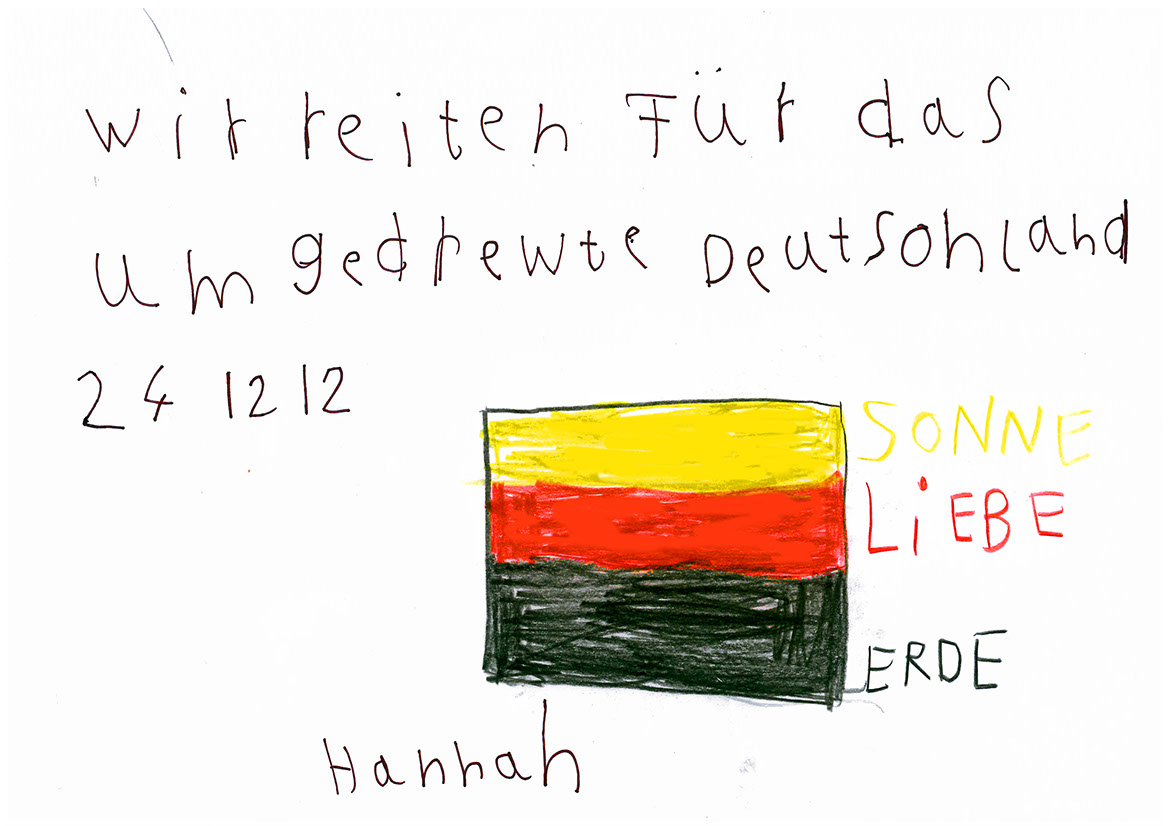 wir reiten Für das
um gedrewte Deutsohland
24 12 12
SONNE
LiEBE
ERDE
Hannah